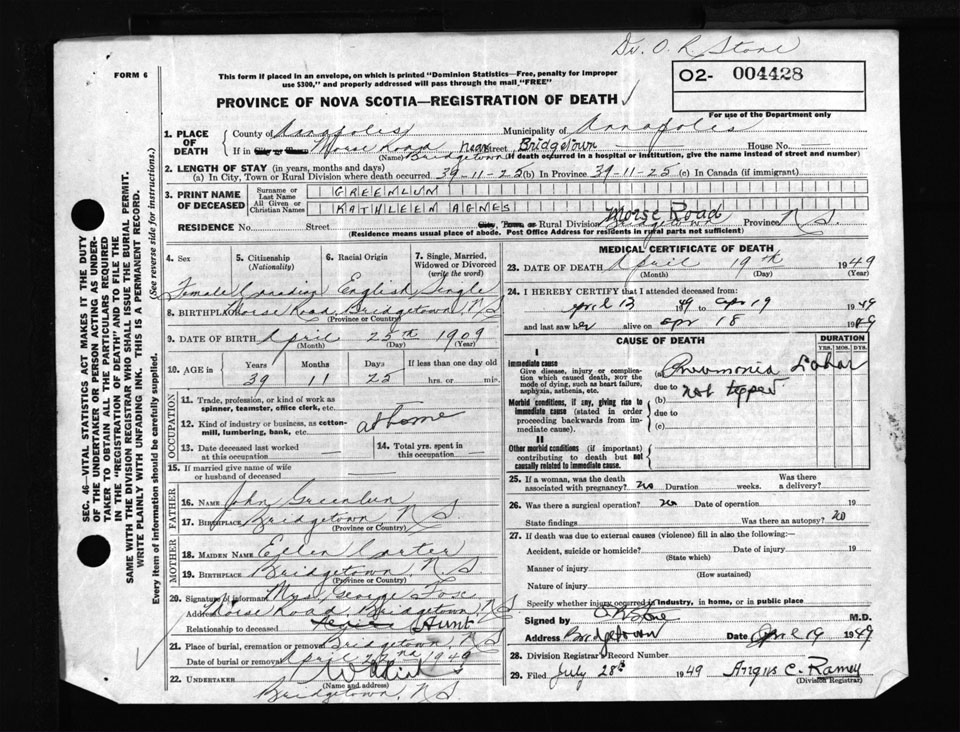 Dr. O. R. Stone
FORM 6
This form if placed in an envelope, on which is printed "Dominion Statistics—Free, penalty for improper
use $300," and properly addressed will pass through the mail "FREE"
O2- 004428
PROVINCE OF NOVA SCOTIA—REGISTRATION OF DEATH
For use of the Department only
1. PLACE OF DEATH
County of Annapolis Municipality of Annapolis
If in City or Town Morse Road near Street Bridgetown House No.
(Name) Bridgetown (If death occurred in a hospital or institution, give the name instead of street and number)
2. LENGTH OF STAY (in years, months and days)
(a) In City, Town or Rural Division where death occurred 39-11-25 (b) In Province 39-11-25 (c) In Canada (if immigrant)
3. PRINT NAME OF DECEASED
Surname or Last Name GREENLUN
All Given or Christian Names KATHLEEN AGNES
RESIDENCE No. Street City, Town, or Rural Division Morse Road Bridgetown Province N S
(Residence means usual place of abode. Post Office Address for residents in rural parts not sufficient)
4. Sex
5. Citizenship (Nationality)
6. Racial Origin
7. Single, Married, Widowed or Divorced (write the word)
Female Canadian English Single
8. BIRTHPLACE Morse Road, Bridgetown, N S
(Province or Country)
9. DATE OF BIRTH April 25th 1909
(Month) (Day) (Year)
10. AGE in
Years Months Days If less than one day old
39 11 25 hrs. or min.
OCCUPATION
11. Trade, profession, or kind of work as
spinner, teamster, office clerk, etc.
12. Kind of industry or business, as cotton-
mill, lumbering, bank, etc. at home
13. Date deceased last worked
at this occupation
14. Total yrs. spent in
this occupation
15. If married give name of wife
or husband of deceased
FATHER
16. NAME John Greenlun
17. BIRTHPLACE Bridgetown, N S.
(Province or Country)
MOTHER
18. MAIDEN NAME Ellen Carter
19. BIRTHPLACE Bridgetown, N S
(Province or Country)
20. Signature of informant Mrs. George
Address Morse Road, Bridgetown, N S
Relationship to deceased
21. Place of burial, cremation or removal Bridgetown, N S
Date of burial or removal April 22nd 1949
22. UNDERTAKER
(Name and address)
Bridgetown, N S
MEDICAL CERTIFICATE OF DEATH
23. DATE OF DEATH April 19th 1949
(Month) (Day) (Year)
24. I HEREBY CERTIFY that I attended deceased from:
April 13 1949 to apr 19 1949
and last saw her alive on apr 18 1949
CAUSE OF DEATH
DURATION
YRS. MOS. DYS.
I
Immediate cause
Give disease, injury or complica-
tion which caused death, not the
mode of dying, such as heart failure,
asphyxia, asthenia, etc.
(a) Pneumonia Lobar
due to not typed
(b)
Morbid conditions, if any, giving rise to
immediate cause (stated in order
proceeding backwards from im-
mediate cause).
due to
(c)
II
Other morbid conditions (if important)
contributing to death but not
causally related to immediate cause.
25. If a woman, was the death
associated with pregnancy? no Duration weeks. Was there
a delivery?
26. Was there a surgical operation? no Date of operation 19
State findings Was there an autopsy? no
27. If death was due to external causes (violence) fill in also the following:
Accident, suicide or homicide? Date of injury 19
(State which)
Manner of injury
(How sustained)
Nature of injury
Specify whether injury occurred in industry, in home, or in public place
Signed by O R Stone M.D.
Address Bridgetown Date April 19 1949
28. Division Registrar's Record Number
29. Filed July 28th 1949 Angus C. Ramey
(Division Registrar)
SEC. 46—VITAL STATISTICS ACT MAKES IT THE DUTY
OF THE UNDERTAKER OR PERSON ACTING AS UNDER-
TAKER TO OBTAIN ALL THE PARTICULARS REQUIRED
IN THE "REGISTRATION OF DEATH" AND TO FILE THE
SAME WITH THE DIVISION REGISTRAR WHO SHALL ISSUE THE BURIAL PERMIT.
WRITE PLAINLY WITH UNFADING INK. THIS IS A PERMANENT RECORD.
Every item of information should be carefully supplied. (See reverse side for instructions.)